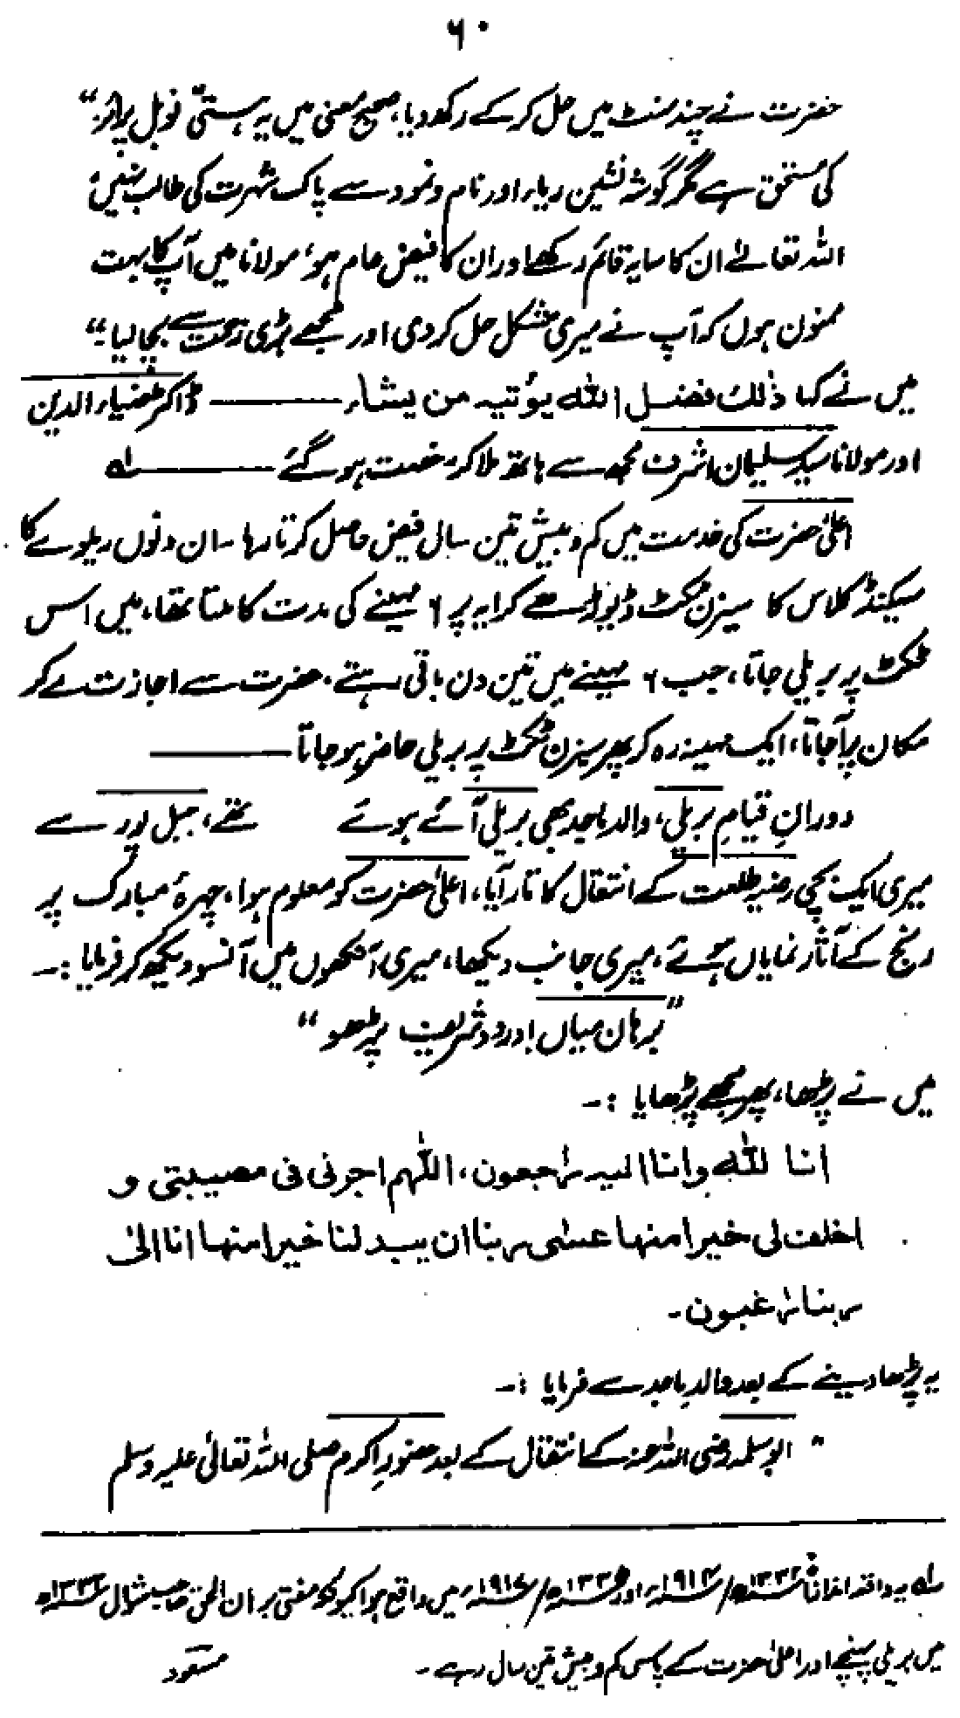 ۶۰
حضرت نے چند منٹ میں حل کر کے رکھ دیا، صحیح معنی میں یہ ہستی نوبل پرائز“
کی مستحق ہے مگر گوشہ نشین ریاء اور نام و نمود سے پاک شہرت کی طالب نہیں،
اللہ تعالےٰ ان کا سایہ قائم رکھے اور ان کا فیض عام ہو، مولانا میں آپ کا بہت
ممنون ہوں کہ آپ نے میری مشکل حل کر دی اور مجھے بڑی زحمت سے بچا لیا۔“
میں نے کہا ذٰلک فضل اللہ یؤتیہ من یشاء ——— ڈاکٹر ضیاء الدین
اور مولانا سید سلیمان اشرف مجھ سے ہاتھ ملا کر رخصت ہو گئے ——— لہ
اعلیٰ حضرت کی خدمت میں کم و بیش تین سال فیض حاصل کرتا رہا۔ ان دنوں ریلوے کا
سیکنڈ کلاس کا سیزن ٹکٹ ڈیوڑھے کرایہ پر ۶ مہینے کی مدت کا ملتا تھا، میں اس
ٹکٹ پر بریلی جاتا، جب ۶ مہینے میں تین دن باقی رہتے، حضرت سے اجازت لے کر
مکان پر آجاتا، ایک مہینہ رہ کر پھر سیزن ٹکٹ پر بریلی حاضر ہو جاتا ———
دورانِ قیامِ بریلی، والد ماجد بھی بریلی آئے ہوئے تھے، جبل پور سے
میری ایک بچی رضیہ طلعت کے انتقال کا تار آیا، اعلیٰ حضرت کو معلوم ہوا، چہرۂ مبارک پر
رنج کے آثار نمایاں ہوئے، میری جانب دیکھا، میری آنکھوں میں آنسو دیکھ کر فرمایا :۔
”برہان میاں! درود شریف پڑھو“
میں نے پڑھا، پھر مجھے پڑھایا :۔
انا للہ وانا الیہ راجعون، اللّٰہم اجرنی فی مصیبتی و
اخلف لی خیرا منہا عسٰی ربنا ان یبدلنا خیرا منہا انا الیٰ
ربنا راغبون۔
یہ پڑھا دینے کے بعد والد ماجد سے فرمایا :۔
” ابو سلمہ رضی اللہ عنہ کے انتقال کے بعد حضورِ اکرم صلی اللہ تعالیٰ علیہ وسلم
لہ یہ واقعہ اغلباً ۱۳۳۲ھ/ ۱۹۱۴ء اور ۱۳۳۵ھ/ ۱۹۱۶ء میں واقع ہوا کیونکہ مفتی برہان الحق صاحب شوال ۱۳۳۲ھ
میں بریلی پہنچے اور اعلیٰ حضرت کے پاس کم و بیش تین سال رہے۔ مسعود